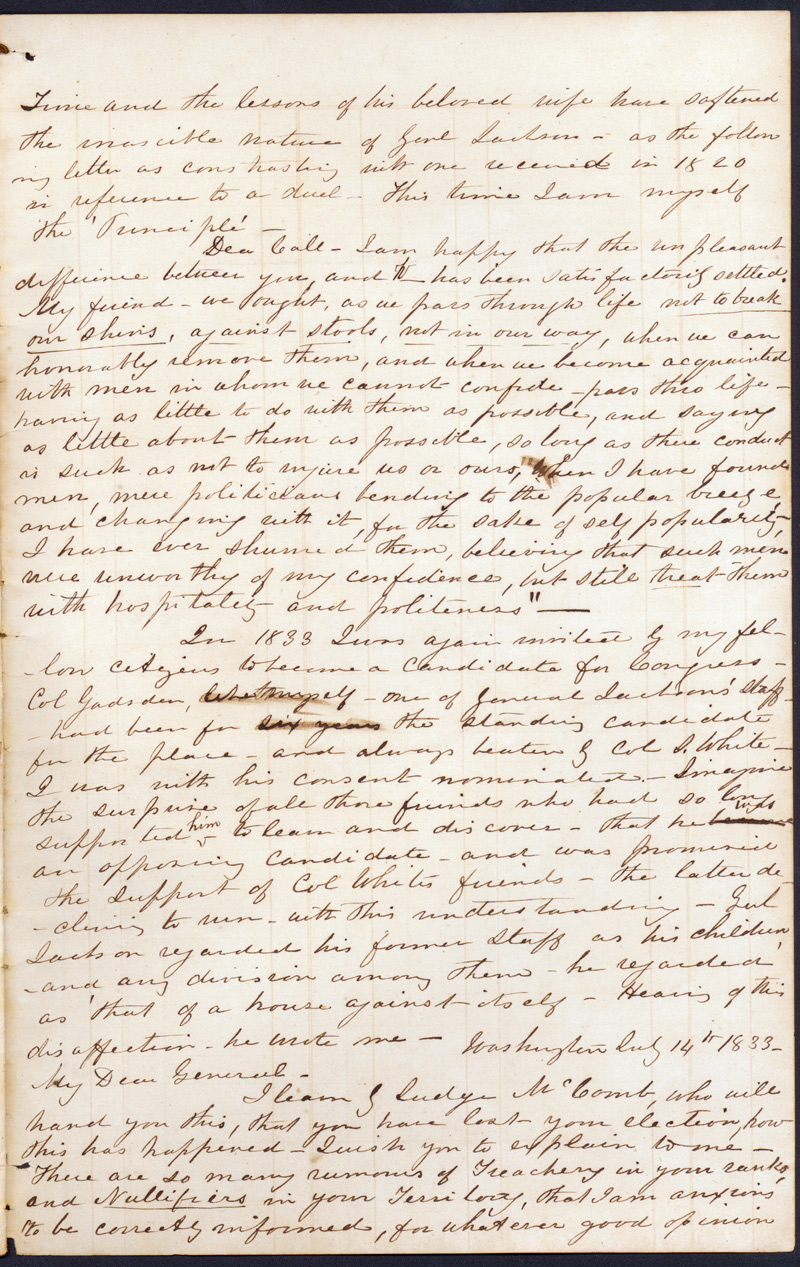 Time and the lessons of his beloved wife have softened
the irascible nature of Genl Jackson - as the follow
ing letter as contrasting with one received in 1820
in reference to a duel - This time I am myself
the 'Principle' -
Dear Call - I am happy that the unpleasant
difference between you, and W- has been satisfactorily settled.
My friend - we ought, as we pass through life not to break
our shins, against stools, not in our way, when we can
honorably remove them, and when we become acquainted
with men in whom we cannot confide - pass thro life -
having as little to do with them as possible, and saying
as little about them as possible, so long as there conduct
is such as not to injure us or ours, when I have found
men, mere politicians bending to the popular breeze
and changing with it, for the sake of self popularity,
I have ever shunned them, believing that such men
were unworthy of my confidence, but still treat them
with hospitality and politeness" -
In 1833 I was again invited by my fel-
-low citizens to become a candidate for Congress -
Col Gadsden, like myself - one of General Jackson's staff -
- had been for six years the standing candidate
for the place - and always beaten by Col J. White -
I was with his consent nominated - Imagine
the surprise of all those friends who had so long
supported him to learn and discover - that he was
an opposing candidate - and was promised
the support of Col Whites friends - the latter de
-clining to run - with this understanding - Genl
Jackson regarded his former Staff as his children
- and any division among them - he regarded
as that of a house against itself - Hearing of this
disaffection - he wrote me -
Washington July 14th 1833 -
My Dear General -
I learn by Judge McComb, who will
hand you this, that you have lost your election, how
this has happened - I wish you to explain to me -
There are so many rumours of Treachery in your ranks,
and Nullifiers in your Territory, that I am anxious
to be correctly informed, for whatever good opinion